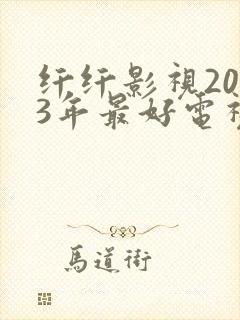 纤纤影視20
3年最好電視
馬道街